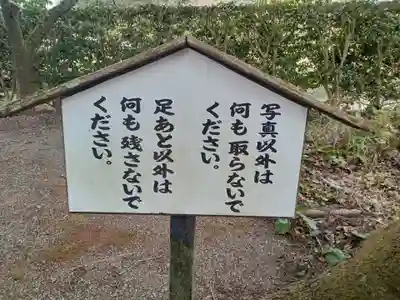 写真以外は
何も取らないで
ください。
足あと以外は
何も残さないで
ください。